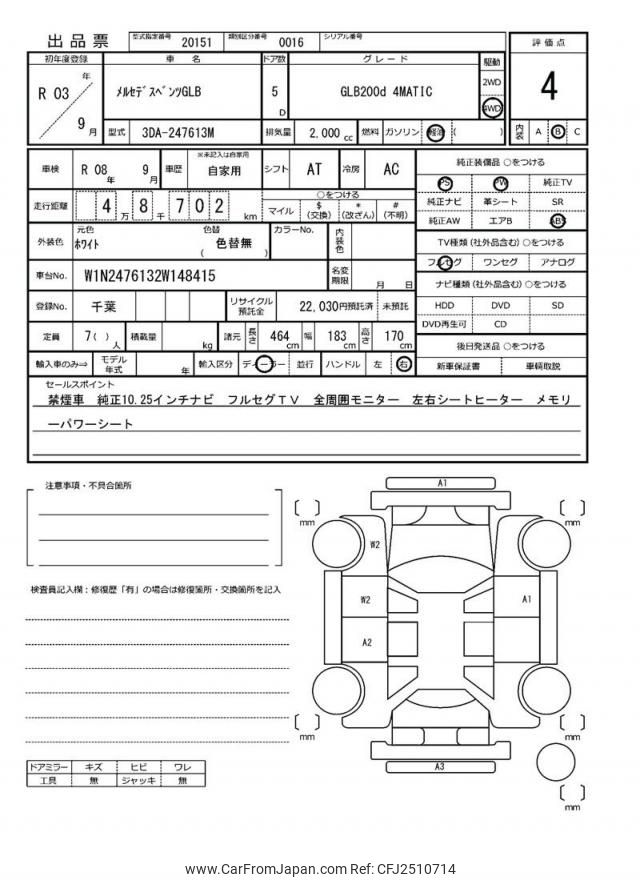 出品票 型式指定番号 20151 類別区分番号 0016 シリアル番号
評価点
4
内装 A B C
初年度登録 車名 ドア数 グレード 駆動
R 03 年 9 月
メルセデスベンツGLB 5 D GLB200d 4MATIC
2WD
4WD
型式 3DA-247613M 排気量 2,000 cc 燃料 ガソリン 軽油 ( )
車検 R 08 年 9 月 車歴 ※未記入は自家用 自家用 シフト AT 冷房 AC
走行距離 4 万 8 千 7 0 2 km
○をつける
マイル $ (交換) * (改ざん) # (不明)
外装色 元色 ホワイト 色替 ( 色替無 ) カラーNo. 内装色
車台No. W1N2476132W148415 名変期限 月 日
登録No. 千葉 リサイクル預託金 22,030円預託済 未預託
定員 7( ) 人 積載量 kg 諸元 長さ 464 cm 幅 183 cm 高さ 170 cm
輸入車のみ⇒ モデル年式 年 輸入区分 ディーラー 並行 ハンドル 左 右
純正装備品 ○をつける
PS PW 純正TV
純正ナビ 革シート SR
純正AW エアB ABS
TV種類 (社外品含む) ○をつける
フルセグ ワンセグ アナログ
ナビ種類 (社外品含む) ○をつける
HDD DVD SD
DVD再生可 CD
後日発送品 ○をつける
新車保証書 車輌取説
セールスポイント
禁煙車 純正10.25インチナビ フルセグTV 全周囲モニター 左右シートヒーター メモリ
ーパワーシート
注意事項・不具合箇所
検査員記入欄：修復歴「有」の場合は修復箇所・交換箇所を記入
ドアミラー キズ ヒビ ワレ
工具 無 ジャッキ 無
A1
mm
mm
W2
W2
A1
A2
mm
mm
A3
mm
www.CarFromJapan.com Ref: CFJ2510714